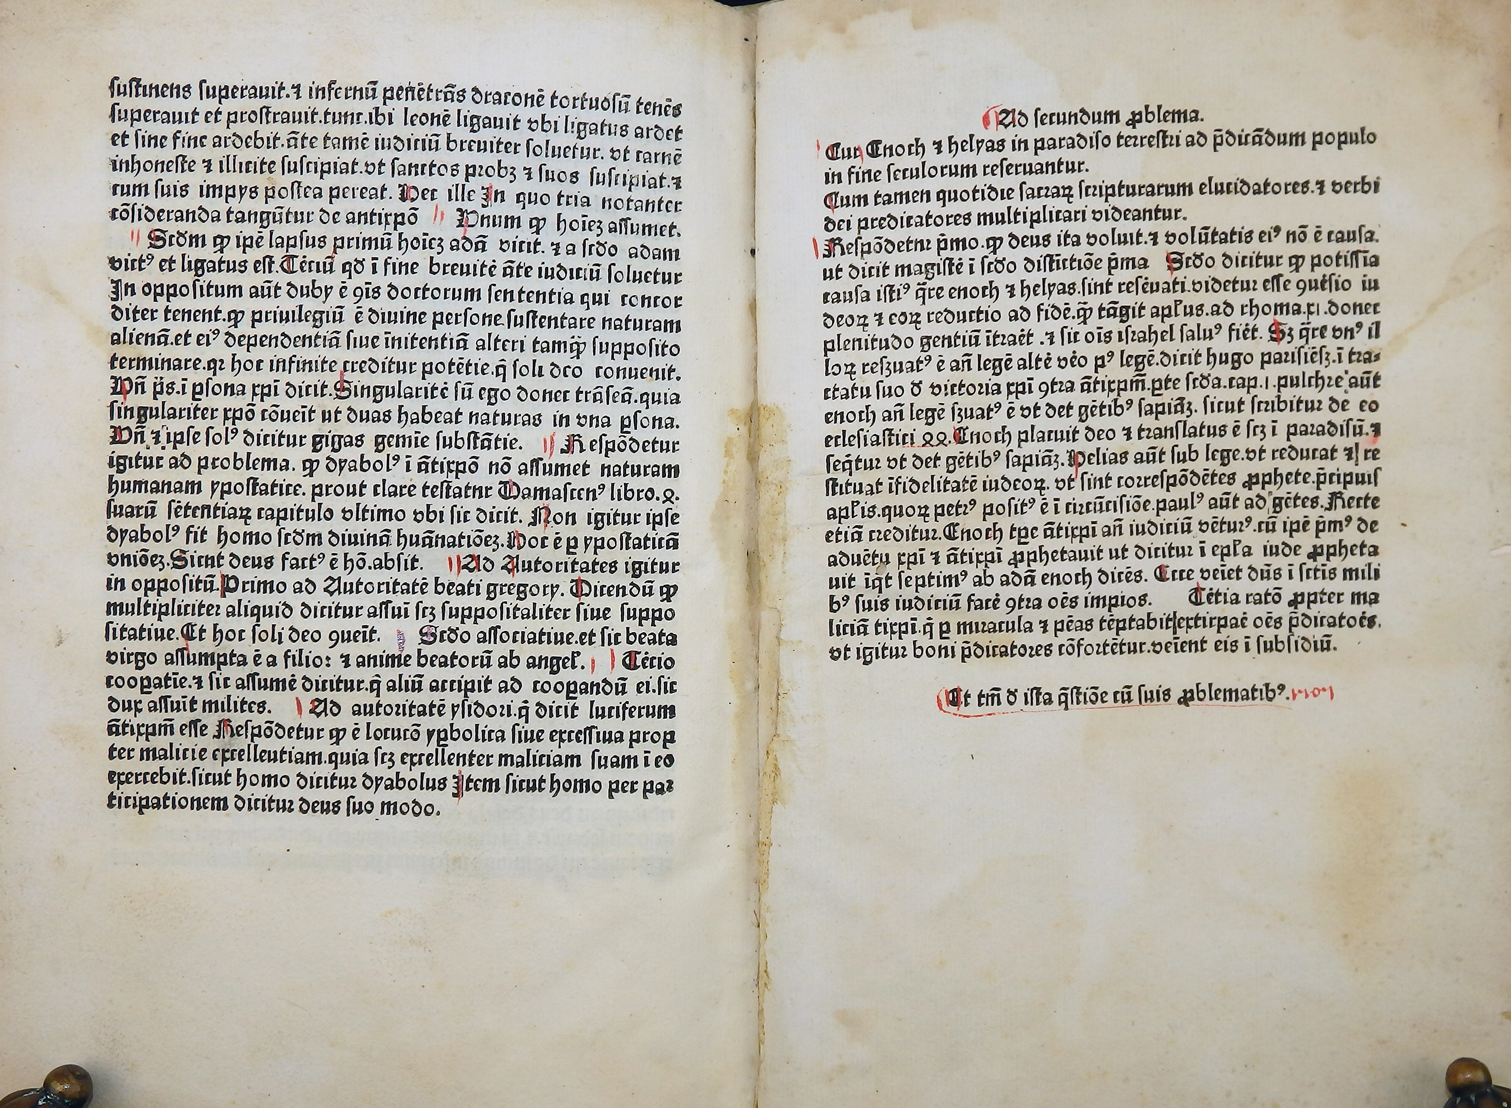 sustinens superauit.⁊ infernū penētrās draconē tortuosū tenēs
superauit et prostrauit.tunc.ibi leonē ligauit vbi ligatus ardet
et sine fine ardebit.āte tamē iudiciū breuiter soluetur. vt carnē
inhoneste ⁊ illicite suscipiat.vt sanctos probꝫ ⁊ suos suscipiat.⁊
cum suis impys postea pereat. Hec ille In quo tria notanter
cōsideranda tangūtur de antixpō Vnum ꝙ hoīeꝫ assumet.
Scd̄m ꝙ ipē lapsus primū hoīeꝫ adā vicit. ⁊ a scd̄o adam
victꝰ et ligatus est.Tēciū qd̄ ī fine breuitē āte iudiciū soluetur
In oppositum aūt duby ē ꝯīs doctorum sententia qui concor
diter tenent.ꝙ priuilegiū ē diuine persone sustentare naturam
alienā.et eiꝰ dependentiā siue īnitentiā alteri tamꝙ̄ supposito
terminare.qꝛ hoc infinite creditur potētie.q̄ soli deo conuenit.
Vn̄ p̄s.ī ꝑsona xpī dicit.Singularitē sū ego donec trāseā.quia
singulariter xpō cōueīt ut duas habeat naturas in vna ꝑsona.
Vn̄ ⁊ ipse solꝰ dicitur gigas gemīe substātie. Respōdetur
igitur ad problema. ꝙ dyabolꝰ ī ātixpō nō assumet naturam
humanam ypostatice. prout clare testatur Damascenꝰ libro.ꝝ.
suarū sētentiaꝝ capitulo vltimo vbi sic dicit. Non igitur ipse
dyabolꝰ fit homo scd̄m diuinā huānatiōeꝫ.Hoc ē ꝑ ypostaticā
vniōeꝫ.Sicut deus factꝰ ē hō.absit. Ad Autoritates igitur
in oppositū.Primo ad Autoritatē beati gregory. Dicendū ꝙ
multipliciter aliquid dicitur assui scꝫ suppositaliter siue suppo
sitatiue.Et hoc soli deo ꝯueīt. Scd̄o associatiue.et sic beata
virgo assumpta ē a filio: ⁊ anime beatorū ab angel̄. Tēcio
cooꝑatīe.⁊ sic assumē dicitur.q̄ aliū accipit ad cooꝑandū ei.sic
dux assuīt milites. Ad autoritatē ysidori.q̄ dicit luciferum
ātixpm̄ esse Respōdetur ꝙ ē locucō yꝑbolica siue excessiua prop
ter malicie excelleutiam.quia scꝫ excellenter maliciam suam ī eo
exercebit.sicut homo dicitur dyabolus Item sicut homo per par
ticipationem dicitur deus suo modo.
Ad secundum ꝓblema.
Cur Enoch ⁊ helyas in paradiso terrestri ad p̄dicādum populo
in fine seculorum reseruantur.
Cum tamen quotidie sacraꝝ scripturarum elucidatores.⁊ verbi
dei predicatores multiplicari videantur.
Respōdetur p̄mo.ꝙ deus ita voluit.⁊ volūtatis eiꝰ nō ē causa.
ut dicit magistē ī scd̄o distīctiōe p̄ma Scd̄o dicitur ꝙ potissīa
causa istiꝰ q̄re enoch ⁊ helyas.sint resēuati.videtur esse ꝯuēsio iu
deoꝝ ⁊ eoꝝ reductio ad fidē.q̄ tāgit apl̄us.ad rhoma.xi.donec
plenitudo gentiū ītraēt .⁊ sic oīs israhel saluꝰ fiēt. Sꝫ q̄re vnꝰ il
loꝝ resꝫuatꝰ ē an̄ legē altē vēo pꝰ legē.dicit hugo parisiēsꝫ.ī tra-
ctatu suo ꝺ victoria xpī ꝯtra ātixpm̄.ꝑte scd̄a.cap.i.pulchre aūt
enoch an̄ legē sꝫuatꝰ ē vt det gētibꝰ sapiāꝫ. sicut scribitur de eo
eclesiastici ꝝꝝ.Enoch placuit deo ⁊ translatus ē scꝫ ī paradisū.⁊
seq̄tur vt det gētibꝰ sapiāꝫ.Helias aūt sub lege.vt reducat ⁊ re
stituat īfidelitatē iudeoꝝ. vt sint correspōdētes ꝓphete.p̄cipuis
apl̄is.quoꝝ petrꝰ positꝰ ē ī circūcisiōe.paulꝰ aūt ad gētes.Recte
etiā creditur.Enoch tꝑe ātixpī an̄ iudiciū vēturꝰ.cū ipē p̄mꝰ de
aduētu xpī ⁊ ātixpī ꝓphetauit ut dicitur ī epl̄a iude ꝓpheta
uit īq̄t septimꝰ ab adā enoch dicēs. Ecce veīet dūs ī sctīs mili
bꝰ suis iudiciū facē ꝯtra oēs impios. Tētia ratō ꝓpter ma
liciā tixpī.q̄ ꝑ miracula ⁊ pēas tēptabit extirpaē oēs p̄dicatoēs.
vt igitur boni p̄dicatores cōfortētur.veīent eis ī subsidiū.
Et tm̄ ꝺ ista q̄stiōe cū suis ꝓblematibꝰ.